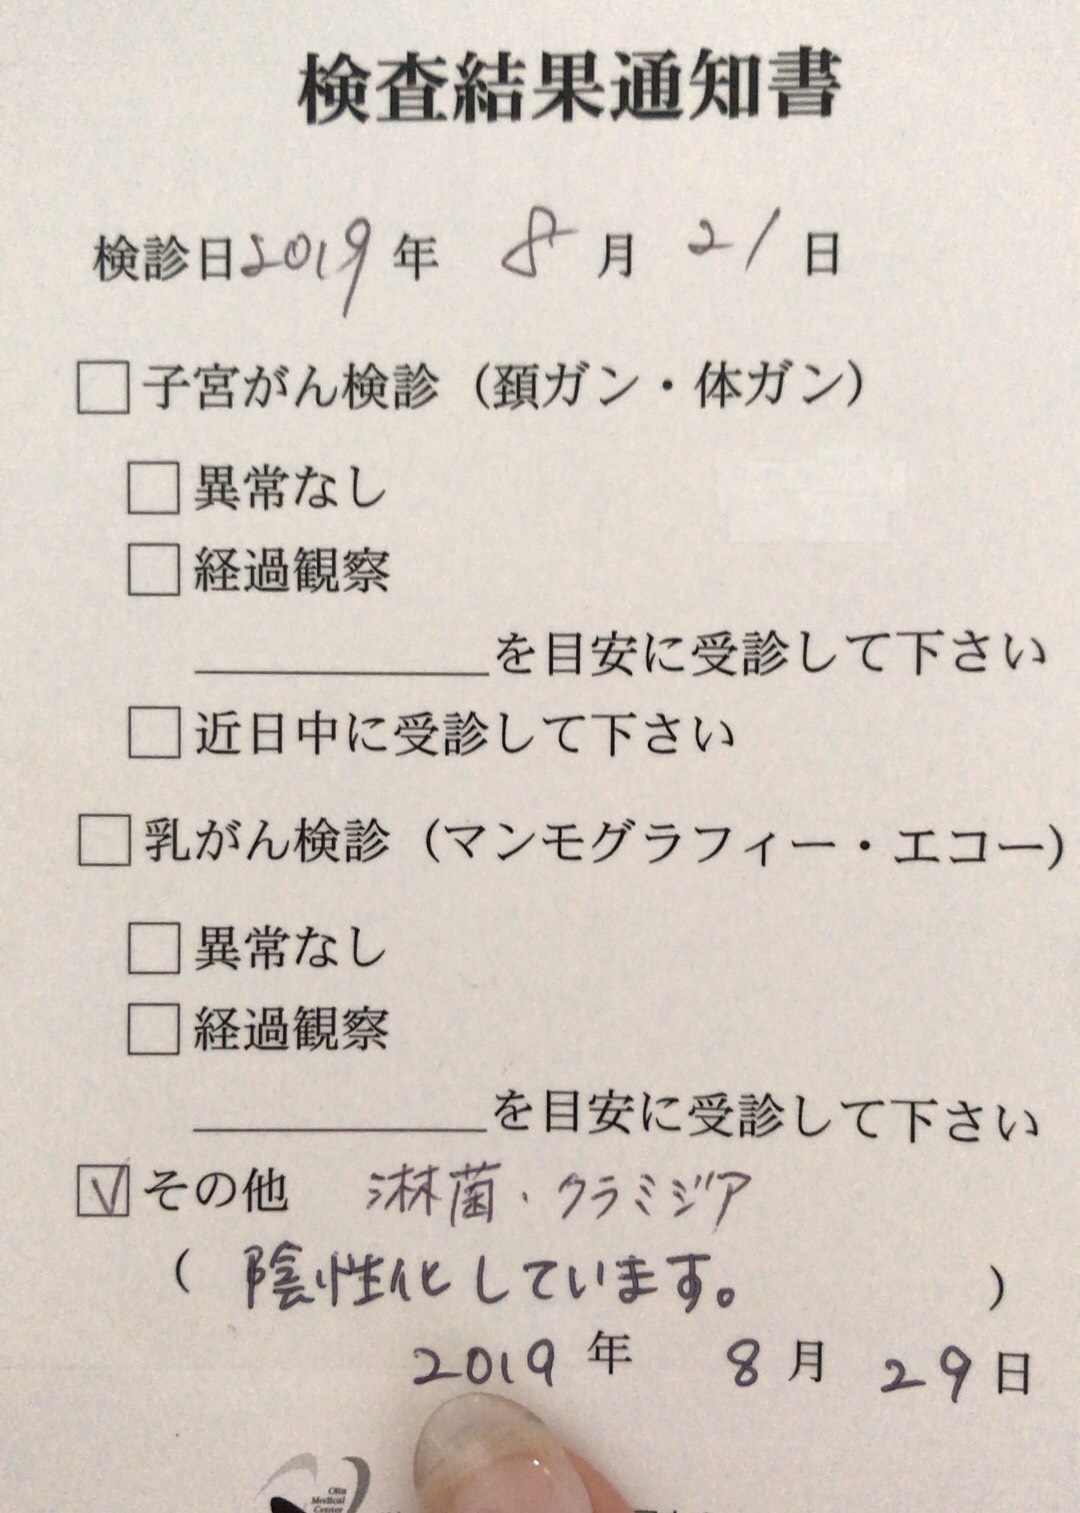 検査結果通知書
検診日2019年 8月 21日
□子宮がん検診（頚ガン・体ガン）
□異常なし
□経過観察
＿＿＿＿＿＿を目安に受診して下さい
□近日中に受診して下さい
□乳がん検診（マンモグラフィー・エコー）
□異常なし
□経過観察
＿＿＿＿＿＿を目安に受診して下さい
☑その他 淋菌・クラミジア
（ 陰性化しています。 ）
2019年 8月 29日
Oita
Medical
Center